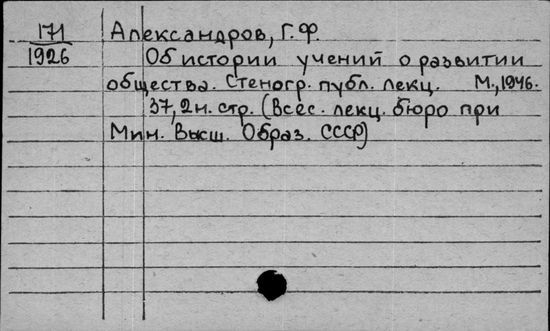 171 Александров, Г.Ф.
1926 Об истории учений о развитии
общества. Стеногр. публ. лекц. М., 1946.
37, 2 н. стр. (Всес. лекц. бюро при
Мин. Высш. Образ. СССР)